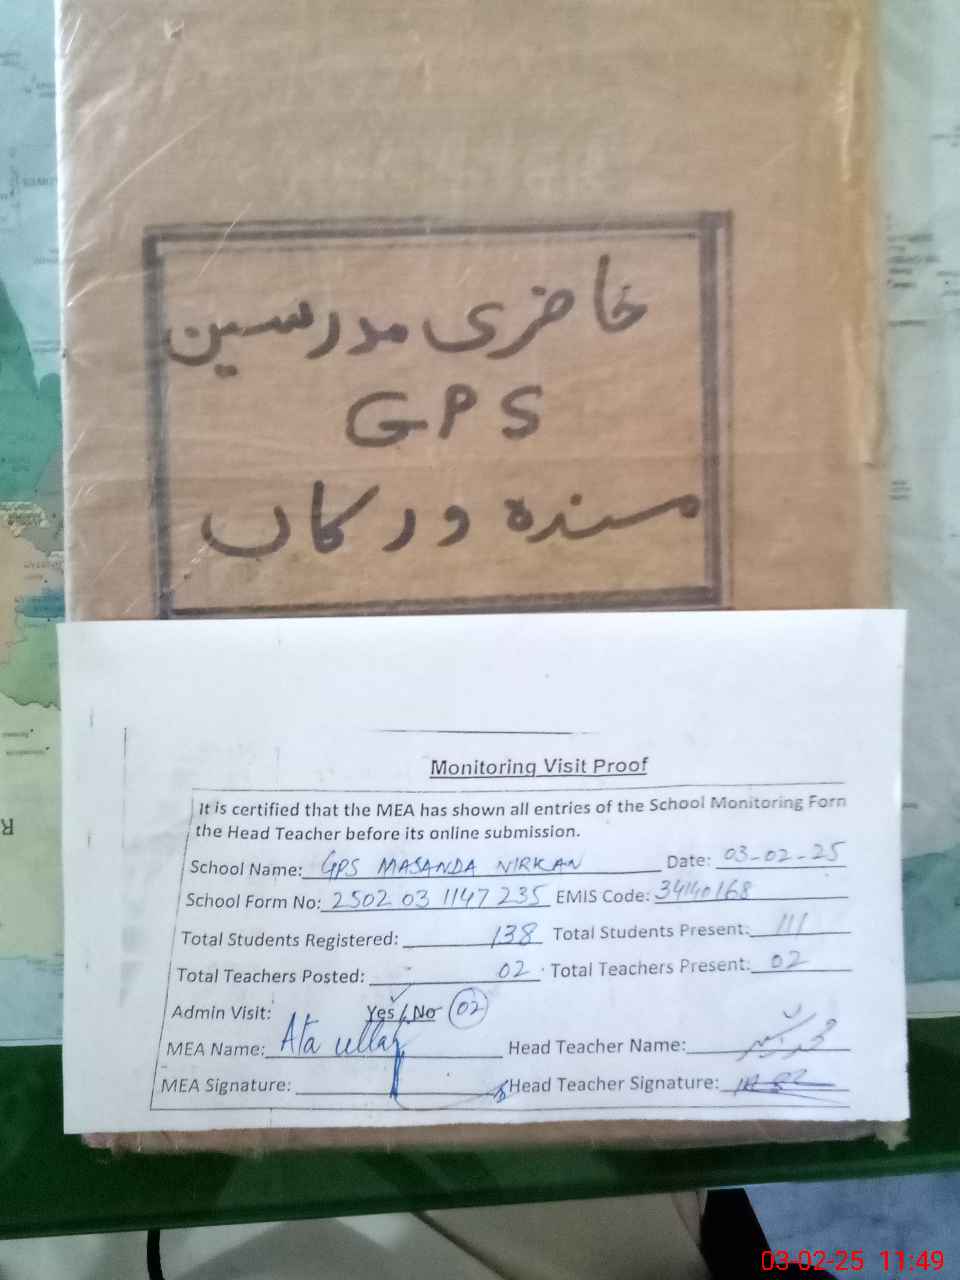 حاضری مدرسین
GPS
مسنده ورکاں
Monitoring Visit Proof
It is certified that the MEA has shown all entries of the School Monitoring Form
the Head Teacher before its online submission.
School Name: GPS MASANDA NIRKAN Date: 03-02-25
School Form No: 2502 03 1147 235 EMIS Code: 34140168
Total Students Registered: 138 Total Students Present: 111
Total Teachers Posted: 02 Total Teachers Present: 02
Admin Visit: Yes / No 02
MEA Name: Ata ullah Head Teacher Name:
MEA Signature: Head Teacher Signature:
03-02-25 11:49